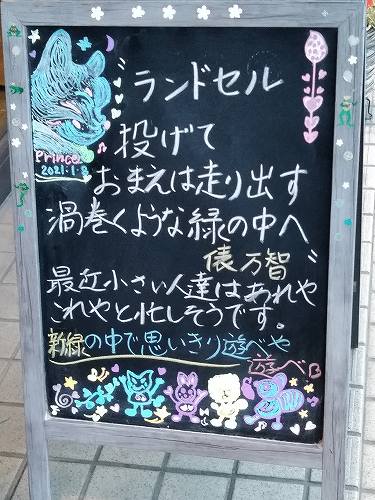 "ランドセル
投げて
おまえは走り出す
渦巻くような緑の中へ
俵万智"
最近小さい人達はあれや
これやと忙しそうです。
新緑の中で思いきり遊べや
遊べB
Prince
2021.1.8